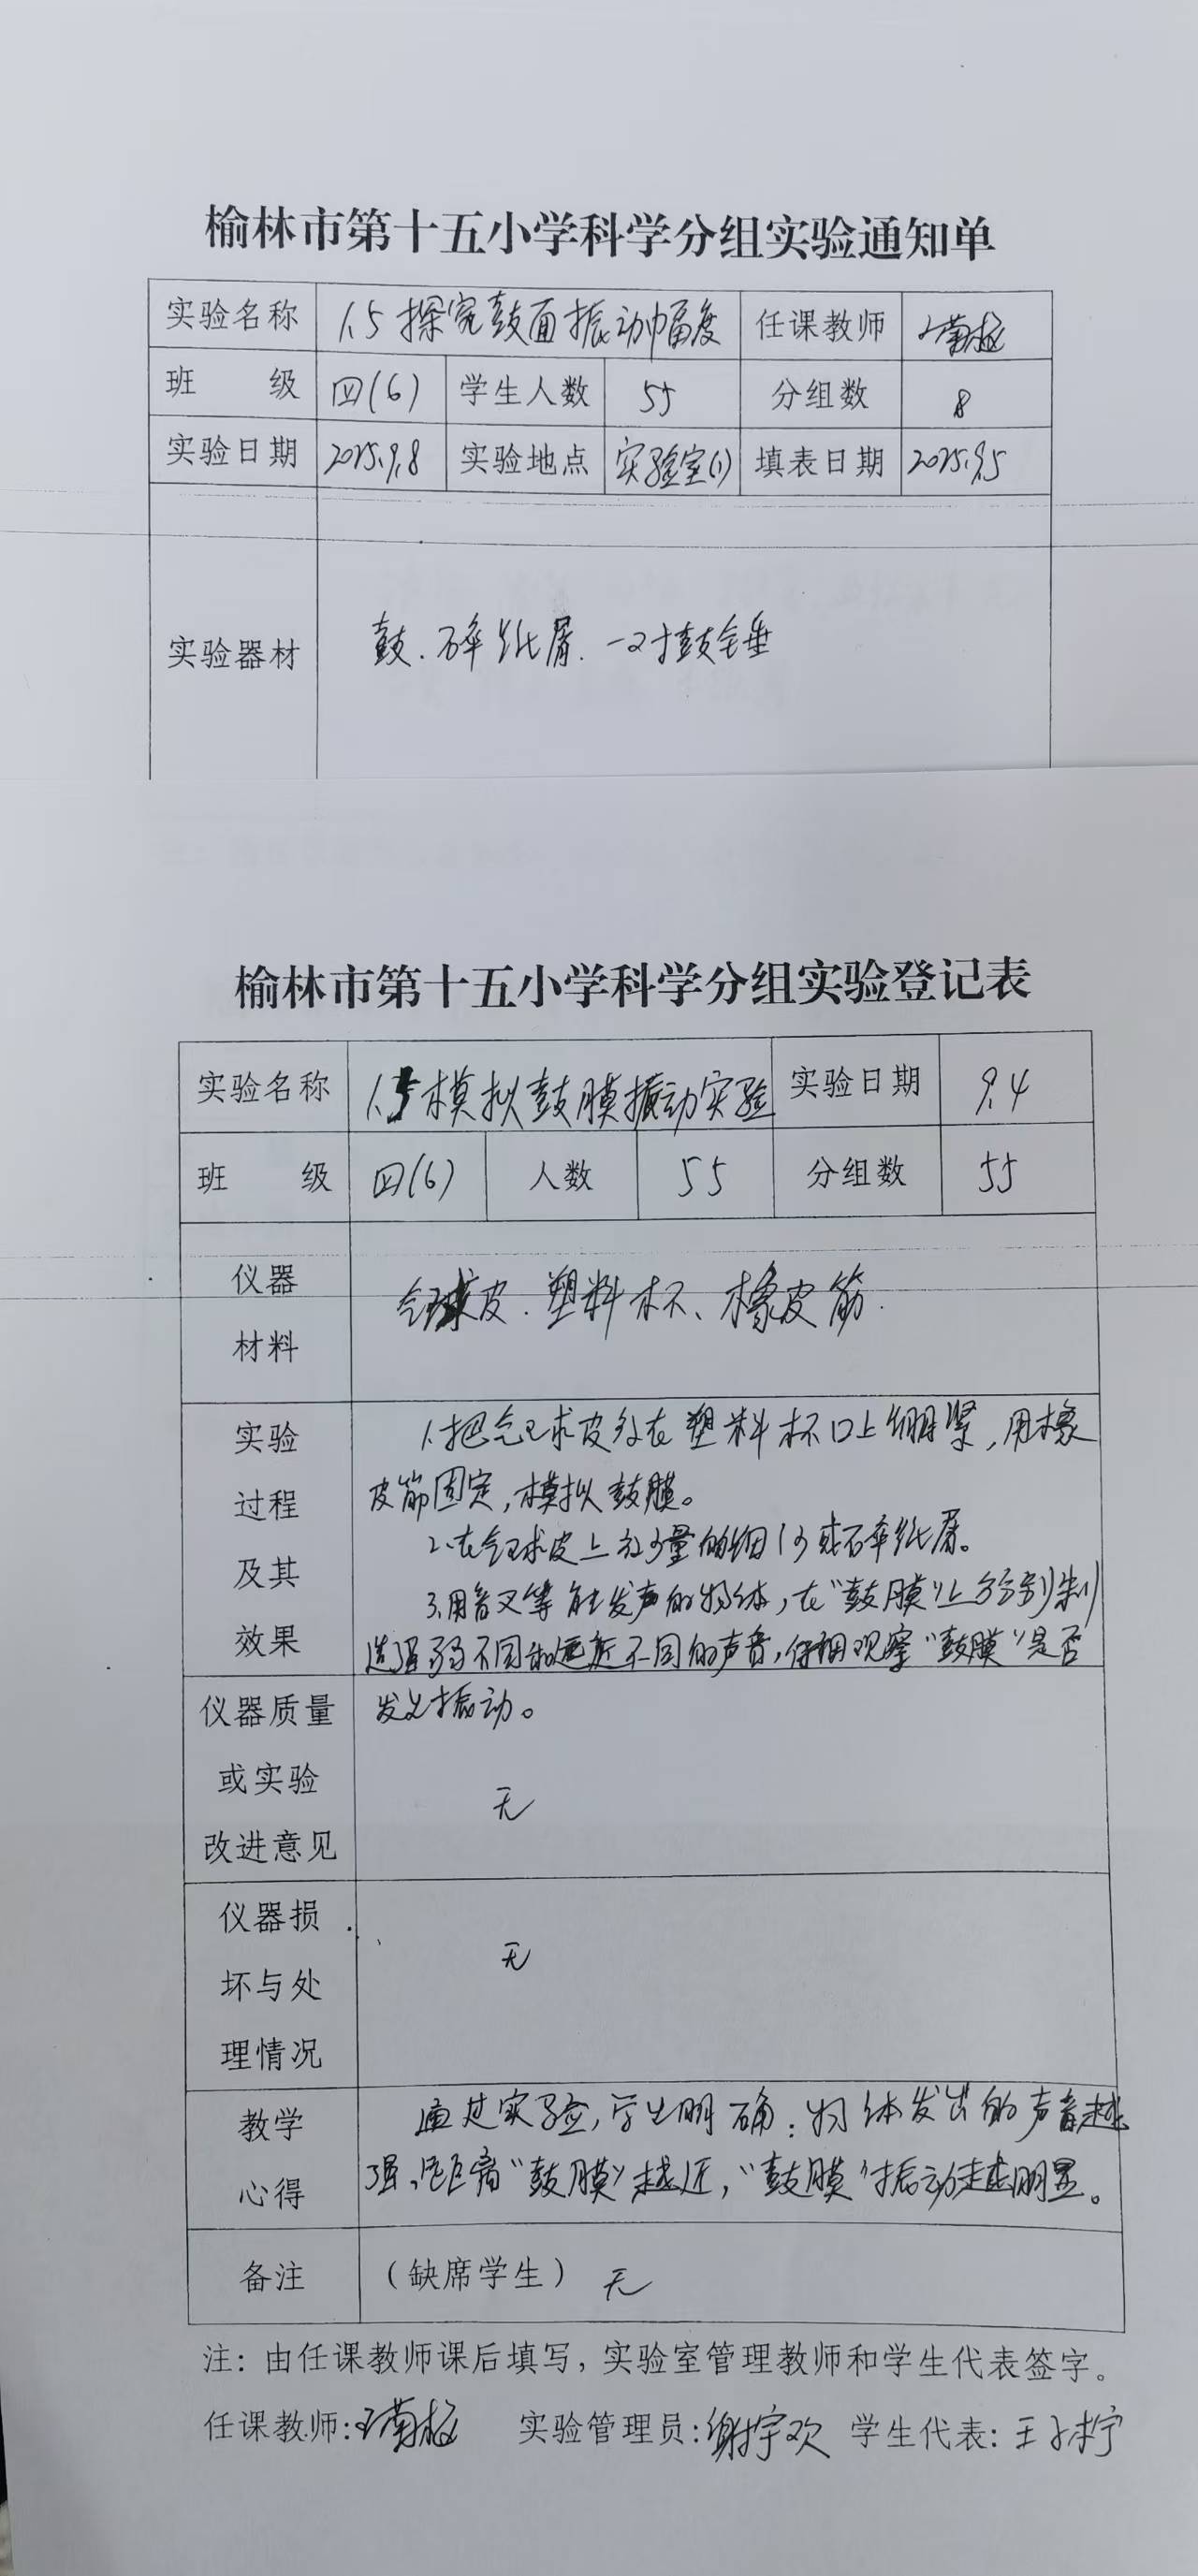 榆林市第十五小学科学分组实验通知单
实验名称 1.5探究鼓面振动幅度 任课教师
班 级 四(6) 学生人数 55 分组数 8
实验日期 2025.9.8 实验地点 实验室(1) 填表日期 2025.9.5
实验器材 鼓.碎纸屑.一对鼓锤
榆林市第十五小学科学分组实验登记表
实验名称 1.5模拟鼓膜振动实验 实验日期 9.4
班 级 四(6) 人数 55 分组数 55
仪器
材料
气球皮.塑料杯、橡皮筋.
实验
过程
及其
效果
1.把气球皮放在塑料杯口上绷紧,用橡
皮筋固定,模拟鼓膜。
2.在气球皮上放少量的细沙或碎纸屑。
3.用音叉等能发声的物体,在“鼓膜”上分别制
造强弱不同和远近不同的声音,仔细观察“鼓膜”是否
发生振动。
仪器质量
或实验
改进意见
无
仪器损
坏与处
理情况
无
教学
心得
通过实验,学生明确:物体发出的声音越
强,距离“鼓膜”越近,“鼓膜”振动越明显。
备注 (缺席学生) 无
注:由任课教师课后填写,实验室管理教师和学生代表签字。
任课教师: 实验管理员:谢宇欢 学生代表:王子柠